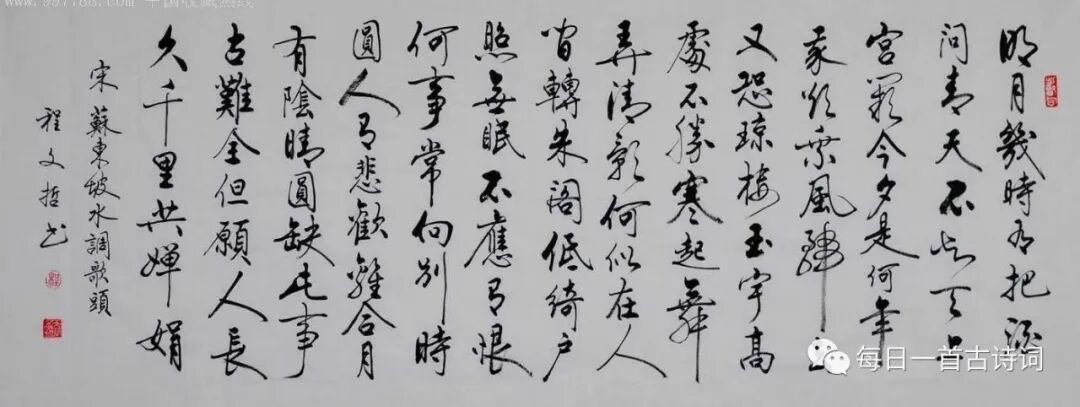 明月幾時有把酒
問青天不知天上
宮闕今夕是何年
我欲乘風歸去
又恐琼樓玉宇高
處不勝寒起舞
弄清影何似在人
间轉朱閣低綺户
照無眠不應有恨
何事常向别時
圓人有悲歡離合月
有陰晴圓缺此事
古難全但願人長
久千里共嬋娟
宋 蘇東坡水調歌頭
程文哲书
www.997788.com 中国收藏热线
每日一首古诗词